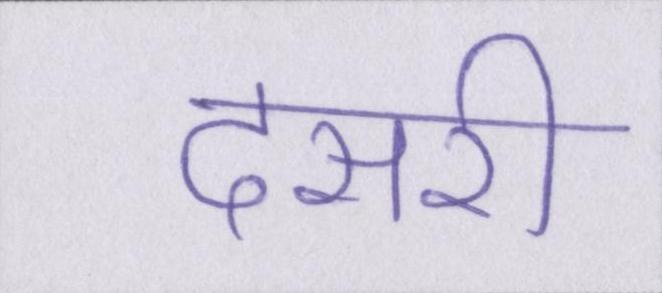 दसरी